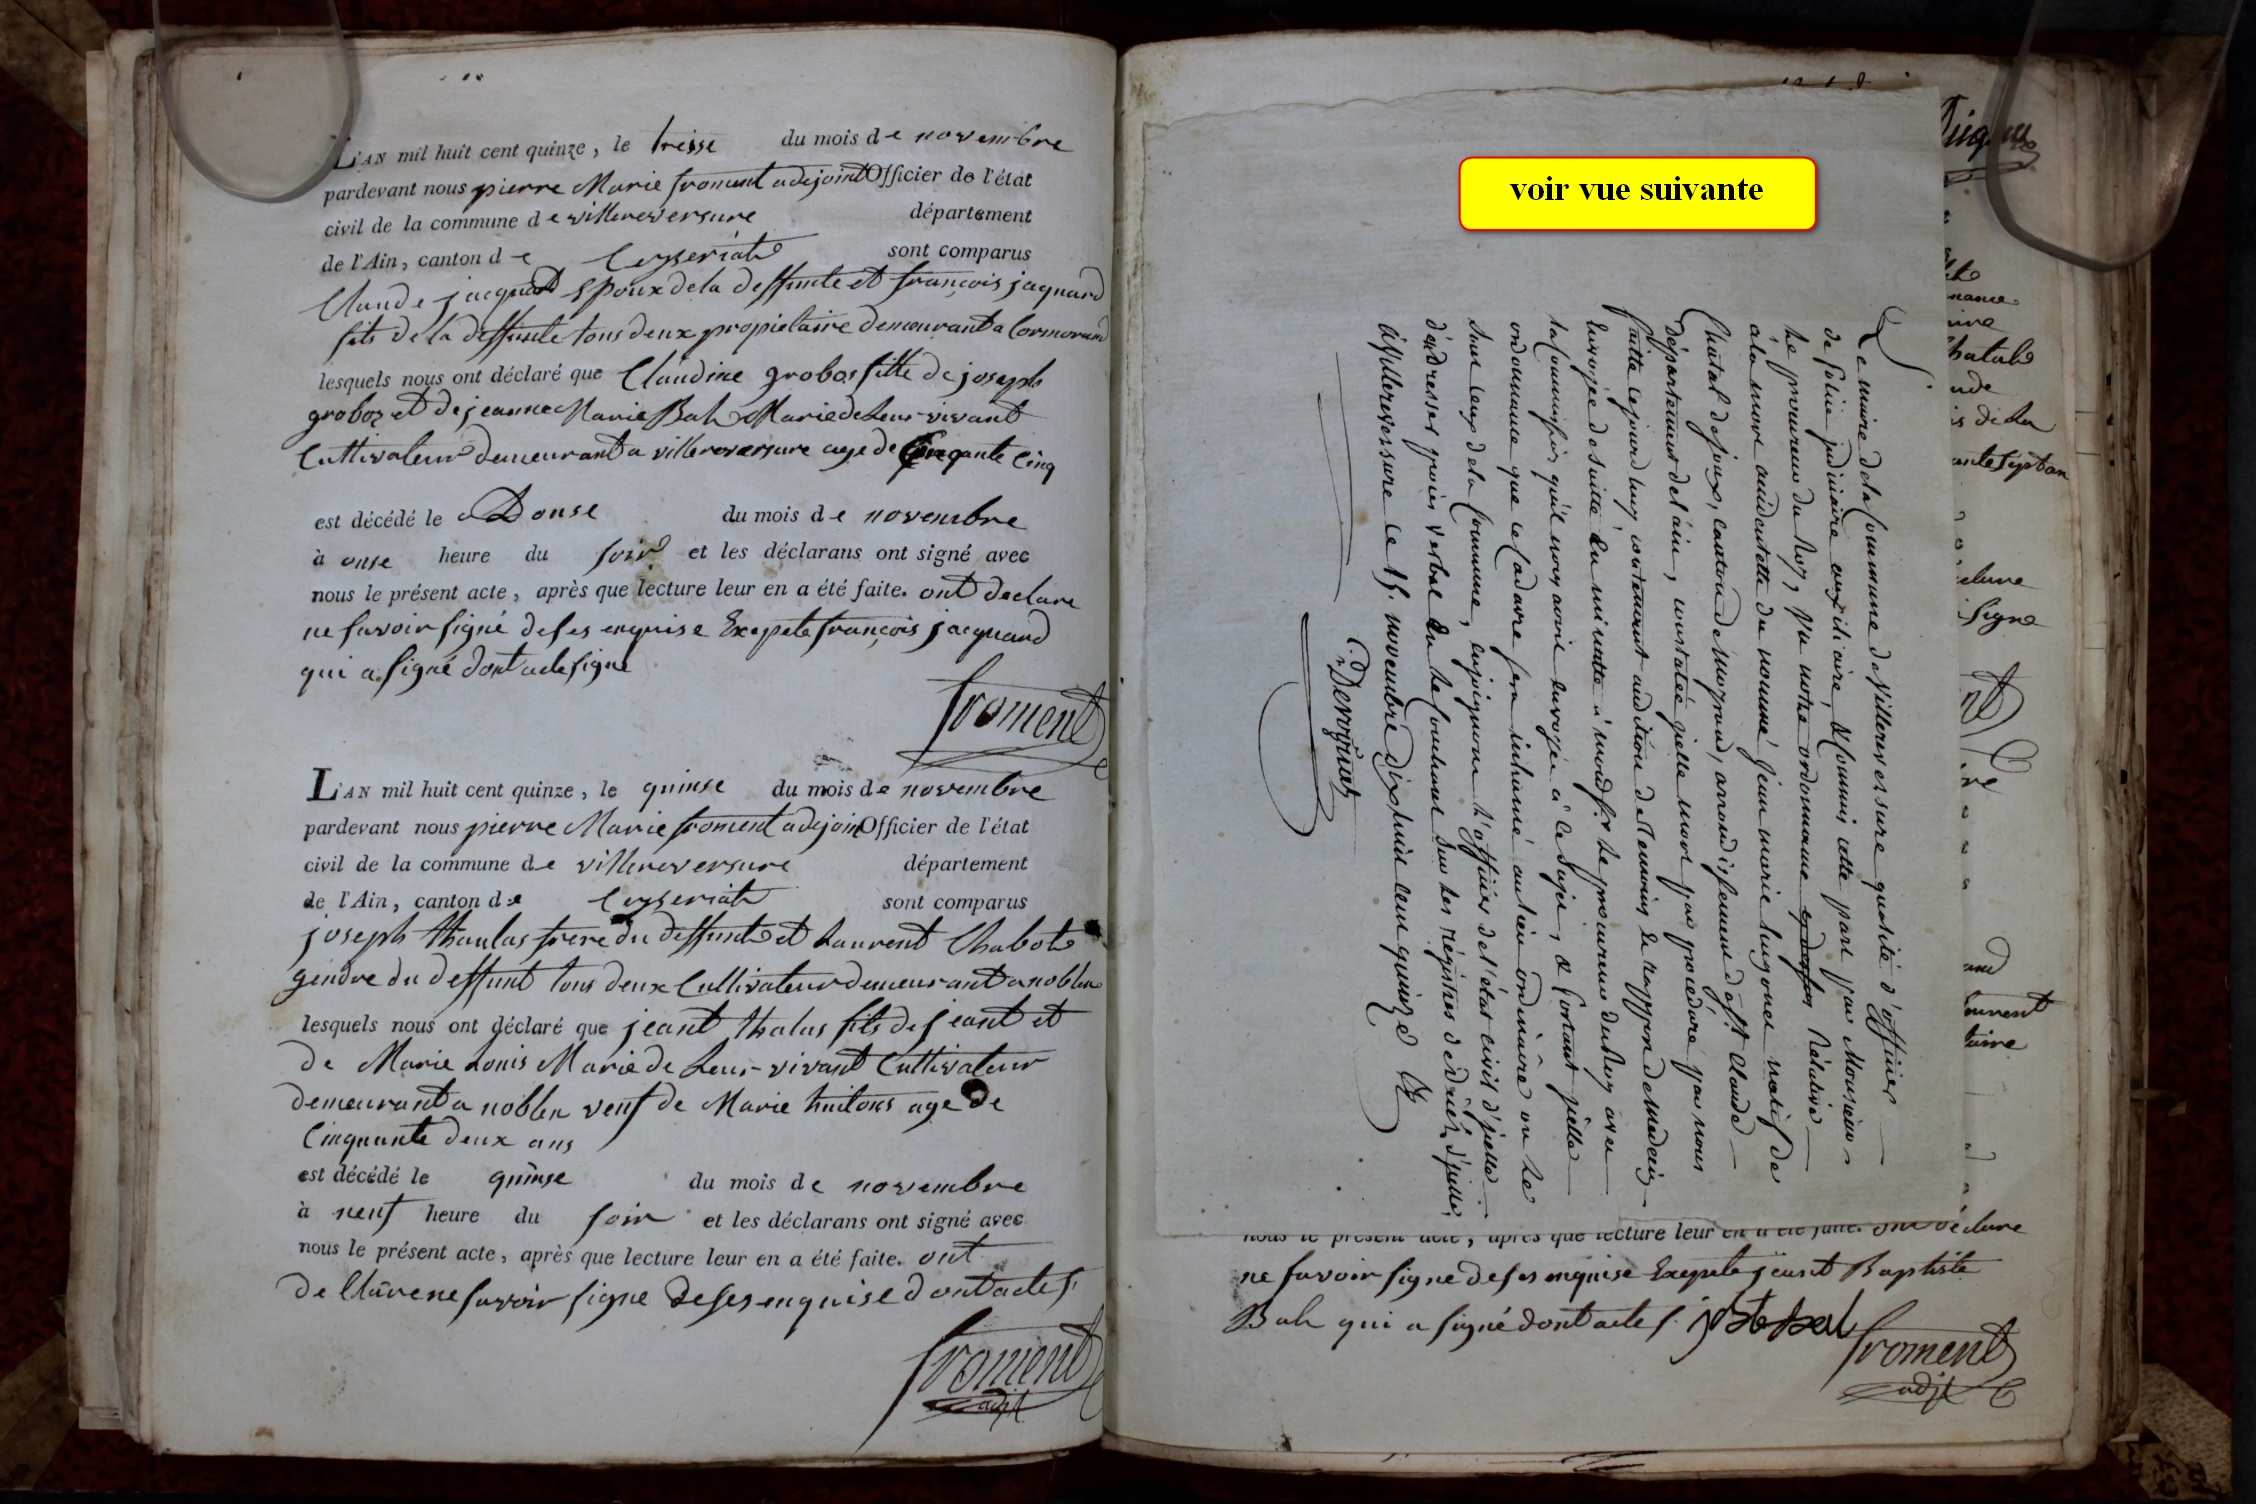 L'AN mil huit cent quinze, le treise du mois de novembre
pardevant nous pierre Marie froment adejoint Officier de l'état
civil de la commune de villereversure département
de l'Ain, canton de Ceyseriat sont comparus
Claude jacquand Epoux de la deffunte et françois jaquard
fils de la deffunte tous deux propietaire demeurant a Cormorand
lesquels nous ont déclaré que Claudine grobos fille de joseph
groboz et de jeanne Marie Bah Marie de Leur vivant
Cultivateur demeurant a villereversure age de Cinquante Cinq
est décédé le Douse du mois de novembre
à onse heure du soir et les déclarans ont signé avec
nous le présent acte, après que lecture leur en a été faite. ont declare
ne savoir signé de ses enquise Exepete françois jacquard
qui a signé dont acte signe
froment
L'AN mil huit cent quinze, le quinse du mois de novembre
pardevant nous pierre Marie froment adejoint Officier de l'état
civil de la commune de villereversure département
de l'Ain, canton de Ceyseriat sont comparus
joseph thaulas frere du deffunt et Laurent Chabot
gendre du deffunt tous deux Cultivateur demeurant a noblen
lesquels nous ont déclaré que jeant thalas fils de jeant et
de Marie Louis Marie de Leur vivant Cultivateur
demeurant a noblen veuf de Marie huitons age de
Cinquante deux ans
est décédé le quinse du mois de novembre
à neuf heure du soir et les déclarans ont signé avec
nous le présent acte, après que lecture leur en a été faite. ont
de Clare ne savoir signe de ses enquise dont acte s
froment
adjt
voir vue suivante
Le maire de la Commune de Villereversure qualité d'officier
de Police judiciaire auxiliaire, & Commis cette part par Monsieur
Le procureur du Roy, Vu notre ordonnance Rélative
à la mort accidentelle du nommé Jean marie hugonet natif de
Châtal dejoux, canton de moyrand, arrondissement de St. Claude
département de l'ain, constatée jcelle mort par procédure par nous
faitte cejourd'huy contenant audition de Temoins le rapport de medecin
Envoyée de suitte En minutte à mondSr. Le procureur du Roy avec
la Commission qu'il nous avoit envoyée à ce Sujet, & portant jcelle
ordonnance que le Cadavre sera inhumé au lieu ordinaire ou Le
Sieur Curé de la Commune, enjoignons L'officier de l'état civil d'jcelle
d'En dresser procès verbal En Le Couchant sur les régistres de décès d'jcelle
à Villereversure ce 15. novembre dix huit cent quinze
C. Deroignat
nous le présent acte, après que lecture leur en a été faite. ont déclare
ne savoir signe de ses enquise Exepete jeant Baptiste
Bah qui a signé dont acte s. jBte bal
froment
adjt